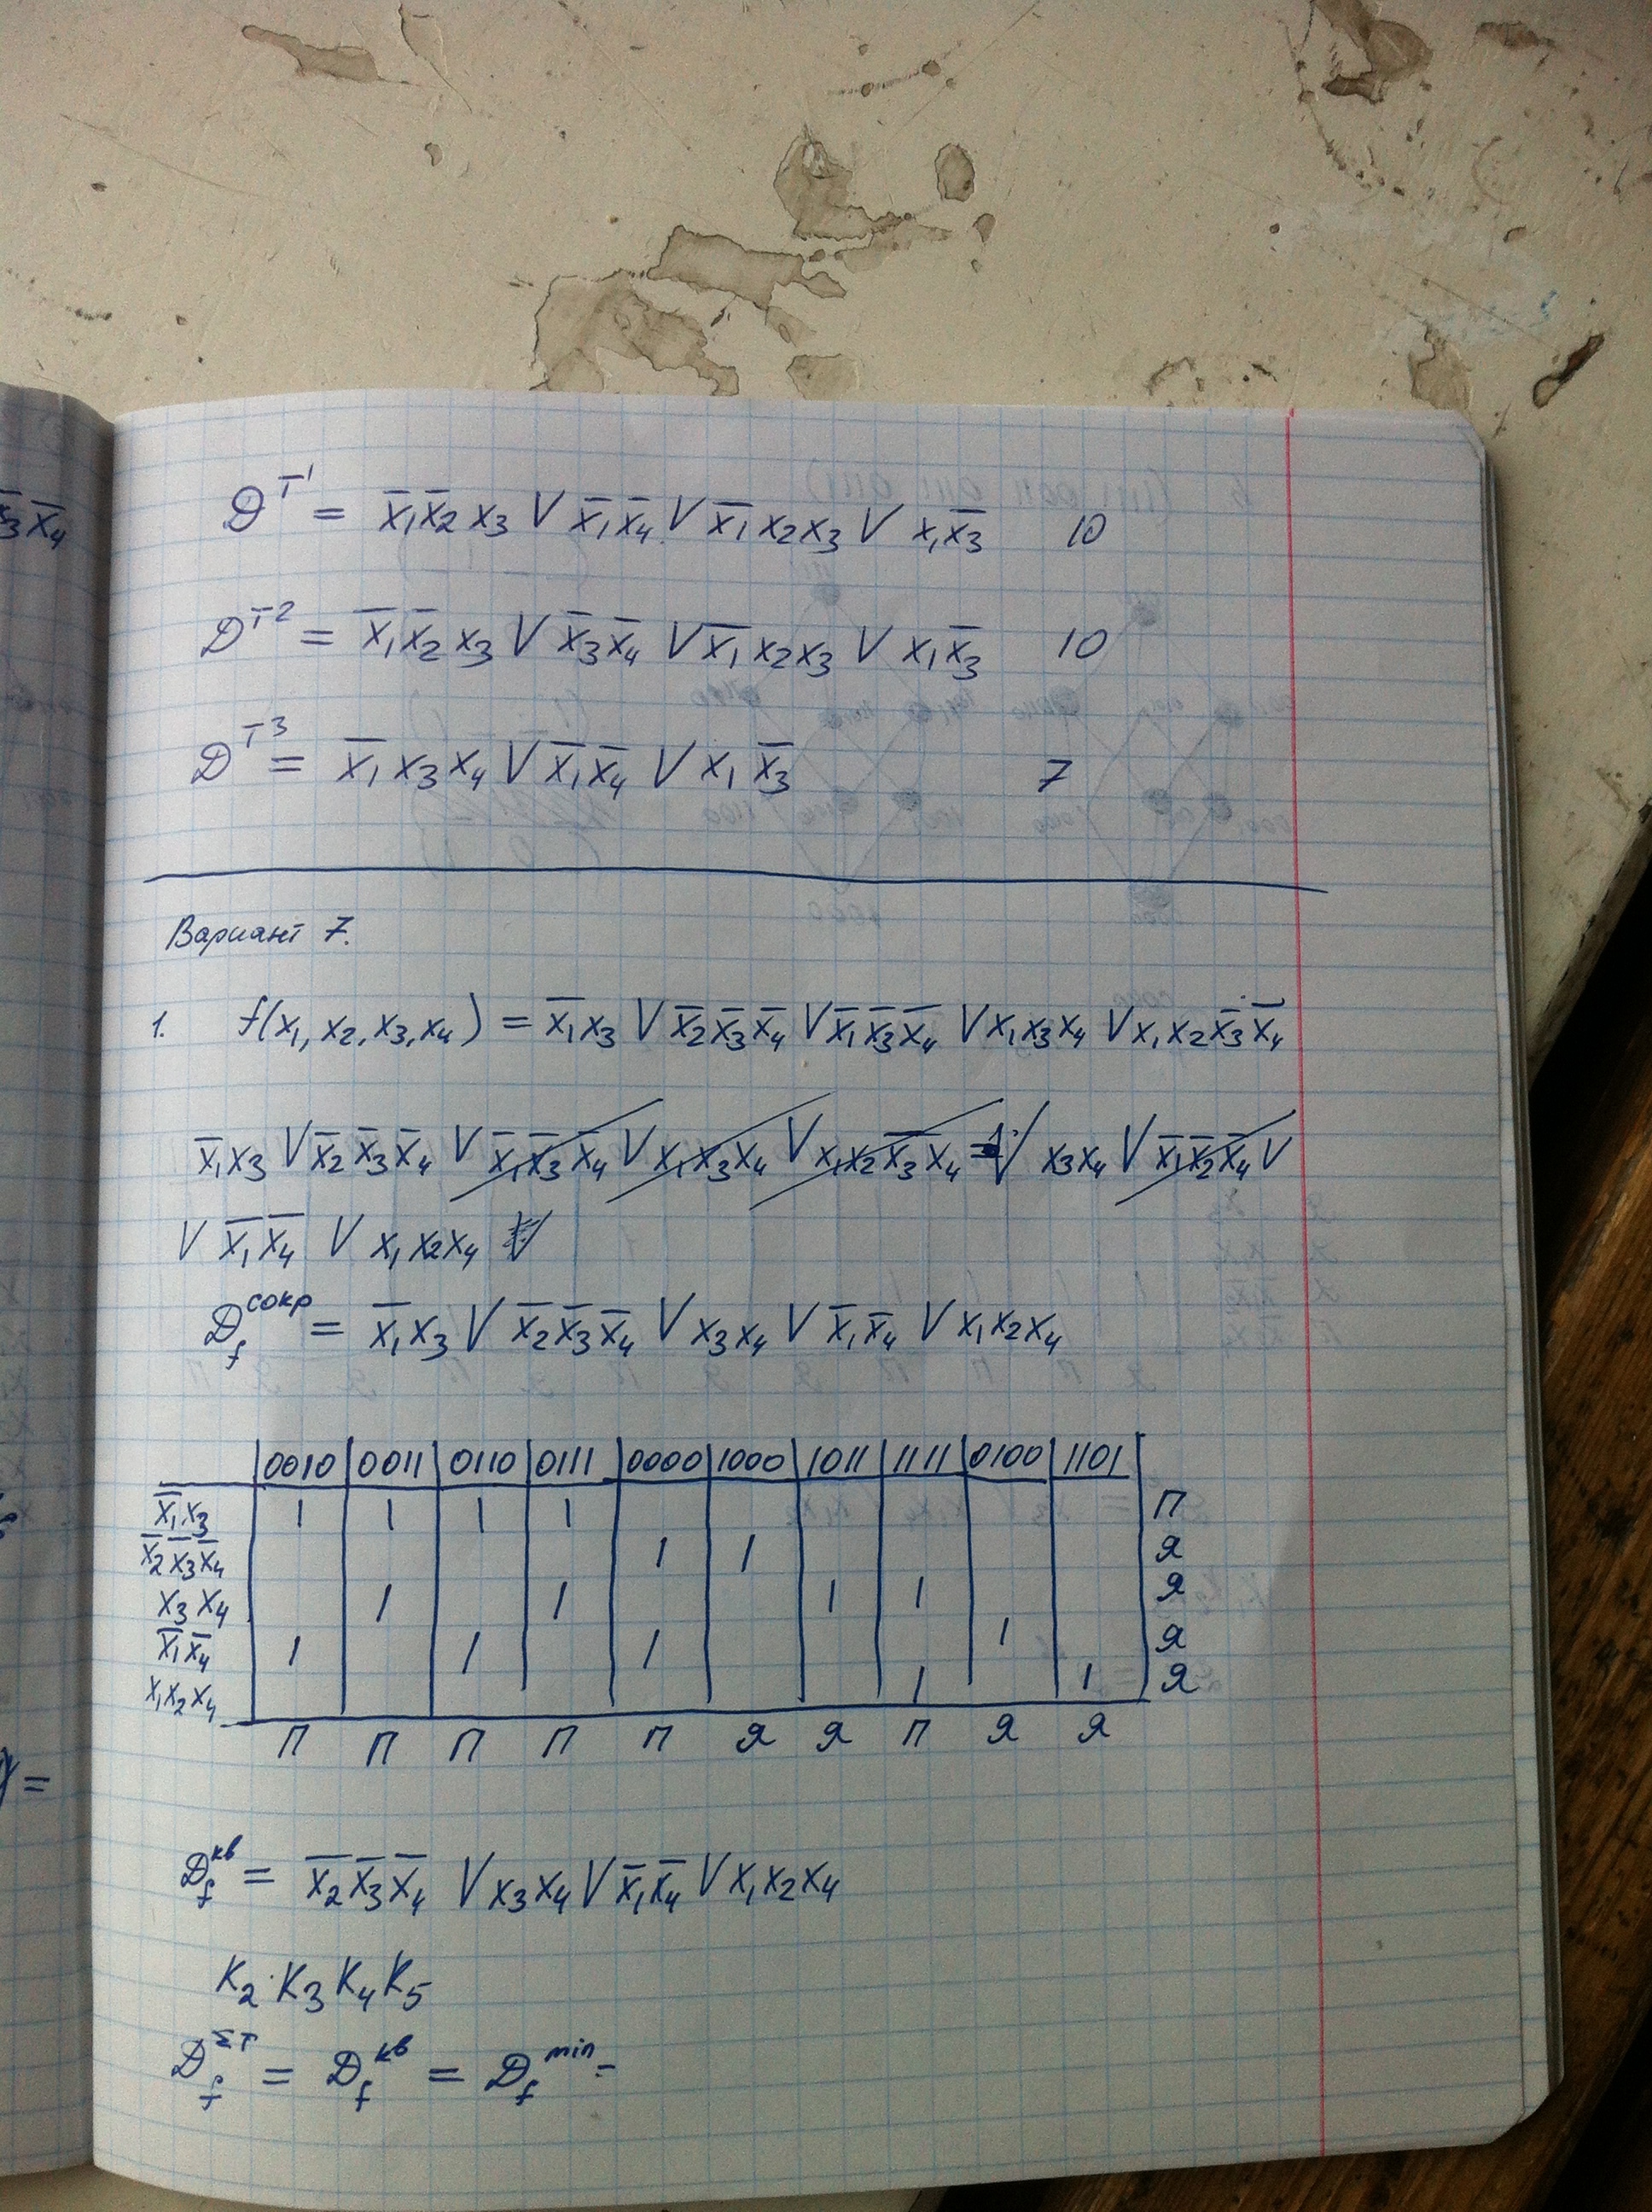 x̄₃x̄₄
D^T1 = x̄₁x̄₂x₃ V x̄₁x̄₄ V x̄₁x₂x₃ V x₁x̄₃ 10
D^T2 = x̄₁x̄₂x₃ V x̄₃x̄₄ V x̄₁x₂x₃ V x₁x̄₃ 10
D^T3 = x̄₁x₃x₄ V x̄₁x̄₄ V x₁x̄₃ 7
Вариант 7.
1. f(x₁, x₂, x₃, x₄) = x̄₁x₃ V x̄₂x̄₃x̄₄ V x̄₁x̄₃x̄₄ V x₁x₃x₄ V x₁x₂x̄₃x̄₄
x̄₁x₃ V x̄₂x̄₃x̄₄ V x̄₁x̄₃x̄₄ V x₁x₃x₄ V x₁x₂x̄₃x₄ = V x₃x₄ V x̄₁x̄₂x̄₄ V
V x̄₁x̄₄ V x₁x₂x₄
D_f^сокр = x̄₁x₃ V x̄₂x̄₃x̄₄ V x₃x₄ V x̄₁x̄₄ V x₁x₂x₄
0010 0011 0110 0111 0000 1000 1011 1111 0100 1101
x̄₁x₃ 1 1 1 1 П
x̄₂x̄₃x̄₄ 1 1 Я
x₃x₄ 1 1 1 1 Я
x̄₁x̄₄ 1 1 1 1 Я
x₁x₂x₄ 1 1 Я
П П П П П Я Я П Я Я
D_f^кв = x̄₂x̄₃x̄₄ V x₃x₄ V x̄₁x̄₄ V x₁x₂x₄
K₂·K₃K₄K₅
D_f^ΣT = D_f^кв = D_f^min =